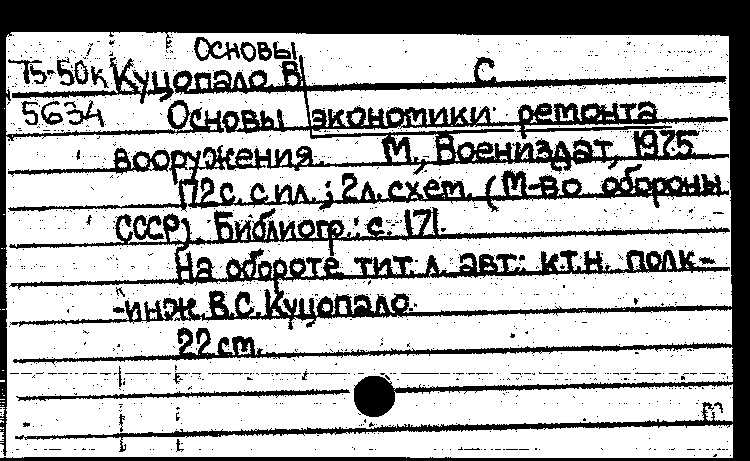 Основы
75-50к Куцопало, В С
5634 Основы экономики ремонта
вооружения. М., Воениздат, 1975
172 с. с ил.; 2 л. схем. (М-во обороны
СССР). Библиогр.: с. 171.
На обороте тит. л. авт.: к.т.н. полк-
-инж. В.С. Куцопало.
22 см.
т